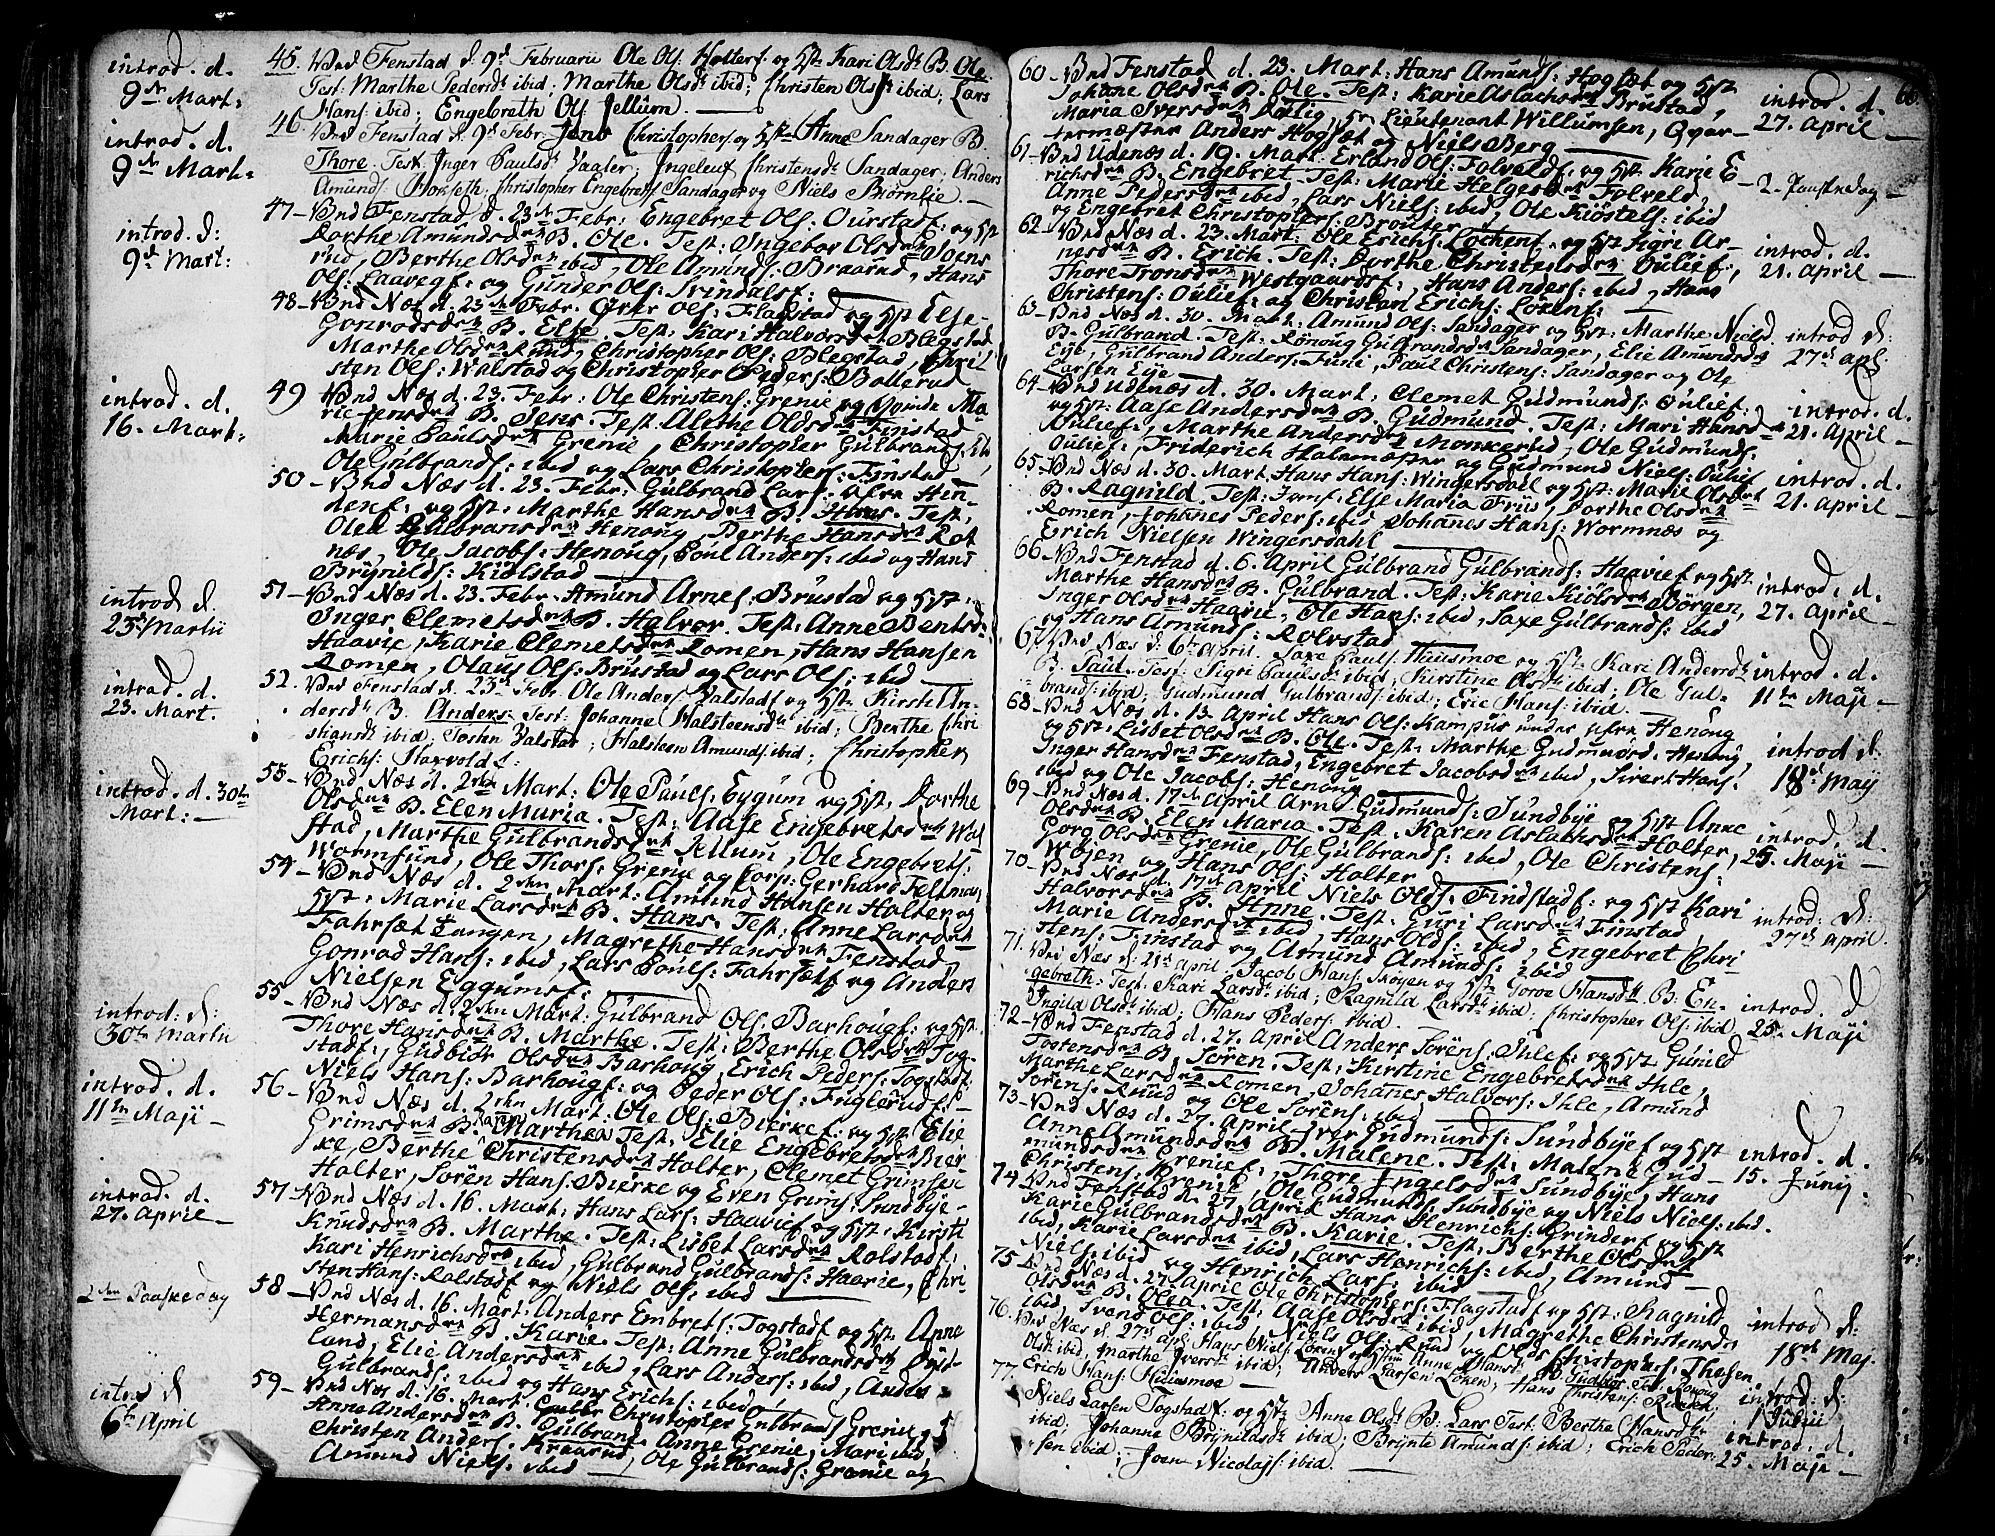 introd. d.
9de Mart:
45. Vnd Fenstad d. 9d Februarii Ole Ols: Holters: og Hst: Kari Olsdt B. Ole
Test: Marthe Pedersdt ibid; Marthe Olsdt ibid; Christen Ols ibid; Lars
Hans: ibid; Engebreth Ols Jellum.
introd. d.
9de Mart:
46. Vnd Fenstad d. 9d Febr. Jens Christophers: og Hst: Anne Sandager B.
Thore. Test: Inger Paulsdt Vaaler; Ingeleuf Christensdt Sandager; Anders
Amunds: Horseth; Christopher Engebrets Sandager og Niels Biørnlie.
introd. d:
9d Mart:
47 - Vnd Fenstad d. 23de Febr: Engebret Ols: Ourstadf: og Hst
Dorthe Amundsdtr B. Ole. Test: Ingebor Olsdtr Joens
rud, Berthe Olsdtr ibid, Ole Amunds: Braarud, Hans
Ols: Laavegf: og Gunder Ols: Svindalsf:
48 - Vnd Næs d. 23de Febr. Over Ols: Flagstad og Hst Else
Gonradsdtr B. Else. Test: Kari Halvorsdt Blegstad
Marthe Olsdtr Ruud, Christopher Ols: Blegstad, Chri
sten Ols: Walstad og Christopher Peders: Bollerud
introd. d.
16. Mart:
49 Vnd Næs d. 23. Febr: Ole Christens: Grenie og Qvinde Ma
rie Jensdtr B. Jens. Test: Alethe Oldsdtr Finstad
Marie Paulsdtr Grenie, Christopher Gulbrands:
Ole Gulbrands: ibid og Lars Christophers: Finstad
50 - Vnd Næs d. 23. Febr: Gulbrand Lars:
nenf: og Hst: Marthe Hansdtr B. Hans. Test:
Olea Gulbransdtr Henoug, Berthe Hansdtr Rot
næs, Ole Jacobs: Henoug, Poul Anders: ibid og Hans
Brynilds: Kiølstad
introd d.
25d Martii
51 - Vnd Næs d. 23. Febr. Amund Arnes: Brustad og Hst:
Inger Clemetsdtr B. Halvor. Test: Anne Bentsd:
Haavie, Karie Clemetsdtr Romen, Hans Hansen
Romen, Olaus Ols: Brustad og Lars Ols: ibid
introd. d.
23. Mart.
52. Vnd Fenstad d. 23d Febr. Ole Anders Valstadf og Hst: Kirsti An-
dersdt B. Anders. Test: Johanne Halsteensdt ibid; Berthe Chri
stiansdt ibid. Tosten Valstad; Halsteen Amunds: ibid; Christopher
Erichs:
introd. d. 30te
Mart:
53 - Vnd Næs d. 2den Mart: Ole Pauls: Eygum og Hst. Dorthe
Olsdtr B. Elen Maria. Test: Aase Engebretsdtr Wal
stad, Marthe Gulbrandsdtr Jellum, Ole Engebrets:
Wormsund, Ole Thors: Grenie og Corp: Gerhard Feltman
54 - Vnd Næs d. 2den Mart: Amund Hansen Holter og
Hst: Marie Larsdtr B. Hans. Test: Anne Larsdtr
Fahrsæt Tangen, Magrethe Hansdtr Fenstad
Gonrad Hans: ibid, Lars Pouls: Fahrsætf og Anders
Nielsen Eggumsf:
introd: d:
30te Martii
55 - Vnd Næs d. 2den Mart: Gulbrand Ols. Barhougf: og Hst.
Thore Hansdtr B. Marthe. Test: Berthe Olsdtr Tog-
stadf:, Gudbiør Olsdtr Barhoug, Erich Peders: Togstadf:
Niels Hans: Barhougf: og Peder Ols: Funglerudf: -
introd. d.
11te Maji -
56 - Vnd Næs d. 2den Mart: Ole Ols: Bierkef: og Hst: Elie
Grimsdtr B. Karen Marthea Test: Elie Engebretsdtr Bier
ke, Berthe Christensdtr Holter, Clemet Grimsen
Holter, Sørén Hans: Bierke og Even Grims: Sundbye-
introd. d.
27. April -
57 - Vnd Næs d. 16. Mart: Hans Lars: Haavief og Hst: Kirsti
Knudsdtr B. Marthe. Test: Lisbet Larsdtr Rolstadf:
Kari Henrichsdtr ibid, Gulbrand Gulbrands: Haavie, Chri
sten Hans: Rolstadf og Niels Ols: ibid
2den Paaskedag
58 - Vnd Næs d. 16. Mart: Anders Embrets: Togstadf og Hst: Anne
Hermansdtr B. Karie. Test: Anne Gulbrandsdtr Dyst-
land, Elie Andersdtr ibid, Lars Anders: ibid, Anders
Gulbrands: ibid og Hans Erichs: ibid
introd d
6te April
59 - Vnd Næs d. 16. Mart. Christopher Gulbrands Grenie og
Anne Andersdtr B. Gulbrand. Anne Grenie, Mari ibid,
Christen Anders: Kraarud, Ole Gulbrands: Grenie og
Amund Niels: ibid

66.
60 - Vnd Fenstad d. 23. Mart: Hans Amunds: Hogsæt og Hst
Johane Olsdtr B. Ole. Test: Karie Aslachsdtr Brustad,
Maria Iversdtr Dølig, Sr. Lieutenant Willumsen, Qvar-
termæster Anders Hogsæt og Niels Berg
introd. d.
27. April -
61 - Vnd Udenæs d. 19. Mart: Erland Ols: Folveldf: og Hst: Karie E
richsdtr B. Engebret Test: Marie Helgesdtr Folveld,
Anne Pedersdtr ibid, Lars Niels: ibid, Ole Kiøstels: ibid
og Engebret Christophers: Brouter
- 2. Paaskedag -
62. Vnd Næs d. 23. Mart: Ole Erichs: Løchenf: og Hst. Sigri Ar-
nesdtr B. Erich. Test: Dorthe Christensdtr Oulief:,
Thore Tronsdtr Westgaardsf:, Hans Anders: ibid, Hans
Christens: Oulief: og Christian Erichs: Løkens:
introd. d.
21. April -
63 - Vnd Næs d. 30. Mart: Amund Ols: Sandager og Hst: Marthe Nielsd
B. Gulbrand. Test: Ronoug Gulbrandsdtr Sandager, Elie Amundsdtr
Eye, Gulbrand Anders: Funi, Paul Christens: Sandager og Ole
Larsen Eye
introd d:
27d apl.
64 - Vnd Udenæs d. 30. Mart, Clemet Gudmunds: Oulief:
og Hst: Aase Andersdtr B. Gudmund. Test: Mari Hansdtr
Oulief:, Marthe Andersdtr Monkerud, Ole Gudmunds:
Oulief:, Friderich Holsmæster og Gudmund Niels: Oulief
introd. d.
21. April -
65 - Vnd Næs d. 30. Mart Hans Hans: Wingersdal og Hst: Marie Olsdtr
B. Ragnild. Test: Jomf. Else Maria Friis, Dorthe Olsdtr
Romen, Johanes Peders: ibid Johanes Hans: Wormnæs og
Erich Nielsen Wingersdahl
introd. d.
21. April -
66 - Vnd Fenstad d. 6. April Gulbrand Gulbrands: Haavief og Hst:
Marthe Hansdtr B. Gulbrand. Test: Karie Kiølsdtr Børgen,
Inger Olsdtr Haavie, Ole Hans: ibid, Saxe Gulbrands: ibid
og Hans Amunds: Rolvstad
introd. d.
27. April -
67. Vnd Næs d: 6te April. Saxe Pauls: Huusmoe og Hst: Kari Andersdt
B. Paul. Test: Sigri Paulsdt ibid; Kirstine Olsdt ibid; Ole Gul-
brands: ibid; Gudmund Gulbrands: ibid; Eric Hans: ibid.
introd. d.
11te Maji -
68 - Vnd Næs d. 13. April Hans Ols: Kampus under Henoug
og Hst: Lisbet Olsdtr B. Ole. Test: Marthe Gudmunsd. Henoug,
Inger Hansdtr Fenstad, Engebret Jacobsdtr ibid, Sivert Hans:
ibid og Ole Jacobs: Henoug
introd d:
18d: Maji
69 - Vnd Næs d. 17de April Arne Gudmunds: Sundbye og Hst Anne
Olsdtr B. Elen Maria. Test: Karen Aslachsdtr Holter,
Gorg Olsdtr Grenie, Ole Gulbrands: ibid, Ole Christens:
Wøjen og Hans Ols: Holter
introd. d.
25. Maji -
70 - Vnd Næs d. 17de April Niels Olds: Findstadf: og Hst Kari
Halvorsdtr B. Anne. Test: Guri Larsdtr Finstad
Marie Andersdtr ibid, Hans Olds: ibid, Engebret Chri
stens: Finstad og Amund Amunds: ibid
introd: d:
27d April.
71. Vnd Næs d: 21d April. Jacob Hans: Skoyen og Hst: Goroe Hansdt. B. En-
gebreth. Test: Kari Larsdt ibid; Ragnild Larsdt ibid; Christopher Ols: ibid.
Ingild Olsdt ibid; Hans Peders: ibid.
introd. d
25. Maji
72 - Vnd Fenstad d. 27. April Anders Sørens: Ihlef: og Hst Gunild
Tostensdtr B. Søren. Test: Kirstine Engebretsdtr Ihle,
Marthe Larsdtr Romen, Johanes Halvors: Ihle, Amund
Sørens: Ruud og Ole Sorens: ibid
73 - Vnd Næs d. 27. April Iver Gudmunds: Sundbyef og Hst
Anne Amundsdtr B. Malene. Test: Malene Gud-
mundsdtr Grenief:, Thore Ingelsdtr Sundbye, Hans
Christens: Grenie, Ole Gudmunds: Sundbye og Niels Niels: ibid.
introd. d.
15. Junij.
74 Vnd Fenstad d. 27. April Hans Henrichs: Grinderf og Hst
Karie Gulbrandsdtr B. Karie. Test: Berthe Olsdtr
ibid, Karie Larsdtr ibid, Lars Henrichs: ibid, Amund
Niels: ibid og Henrich Lars: ibid
75 - Vnd Næs d. 27. April Ole Christophers: Flagstadf og Hst: Ragnild
Olsdtr B. Olea. Test: Aase Olsdtr ibid, Magrethe Christensdtr
ibid, Svend Ols: ibid Niels Ols: Ruud og Olds: Christophers: Thesen
introd d:
18de Maj.
76. Vnd Næs d. 27d apl. Hans Niels: Løken og Hst: Anne Hansdt B. Gulbor Test: Ronoug
Olsdt ibid; Marthe Iversdt ibid; Anders Larsen Løken; Hans Christens: Ruuken,
Erich Hans: Huusmoe
introd: d:
1 Julii
77. Niels Larsen Togstadf: og Hst: Anne Olsdt B: Lars Test: Berthe Hansdt
ibid. Johanne Brynildsdt ibid; Brynte Amunds: ibid; Erich Peder-
sen ibid; Joen Nicolajs: ibid.
introd. d.
25. Maji -